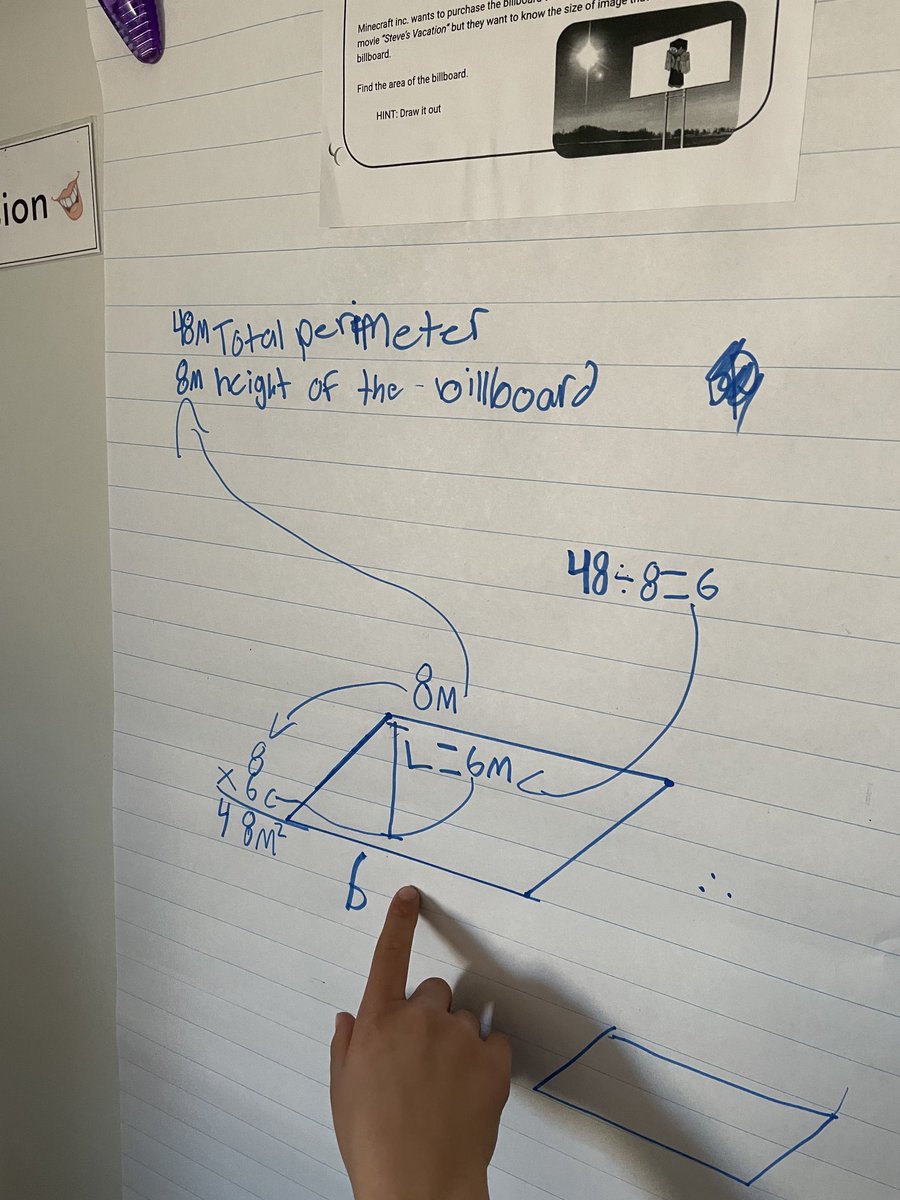 Minecraft inc. wants to purchase the billboard
movie "Steve's Vacation" but they want to know the size of image
billboard.
Find the area of the billboard.
HINT: Draw it out
ion
48M Total perimeter
8m height of the billboard
48÷8=6
8M
L=6M
8
x 6
48M²
b
∴